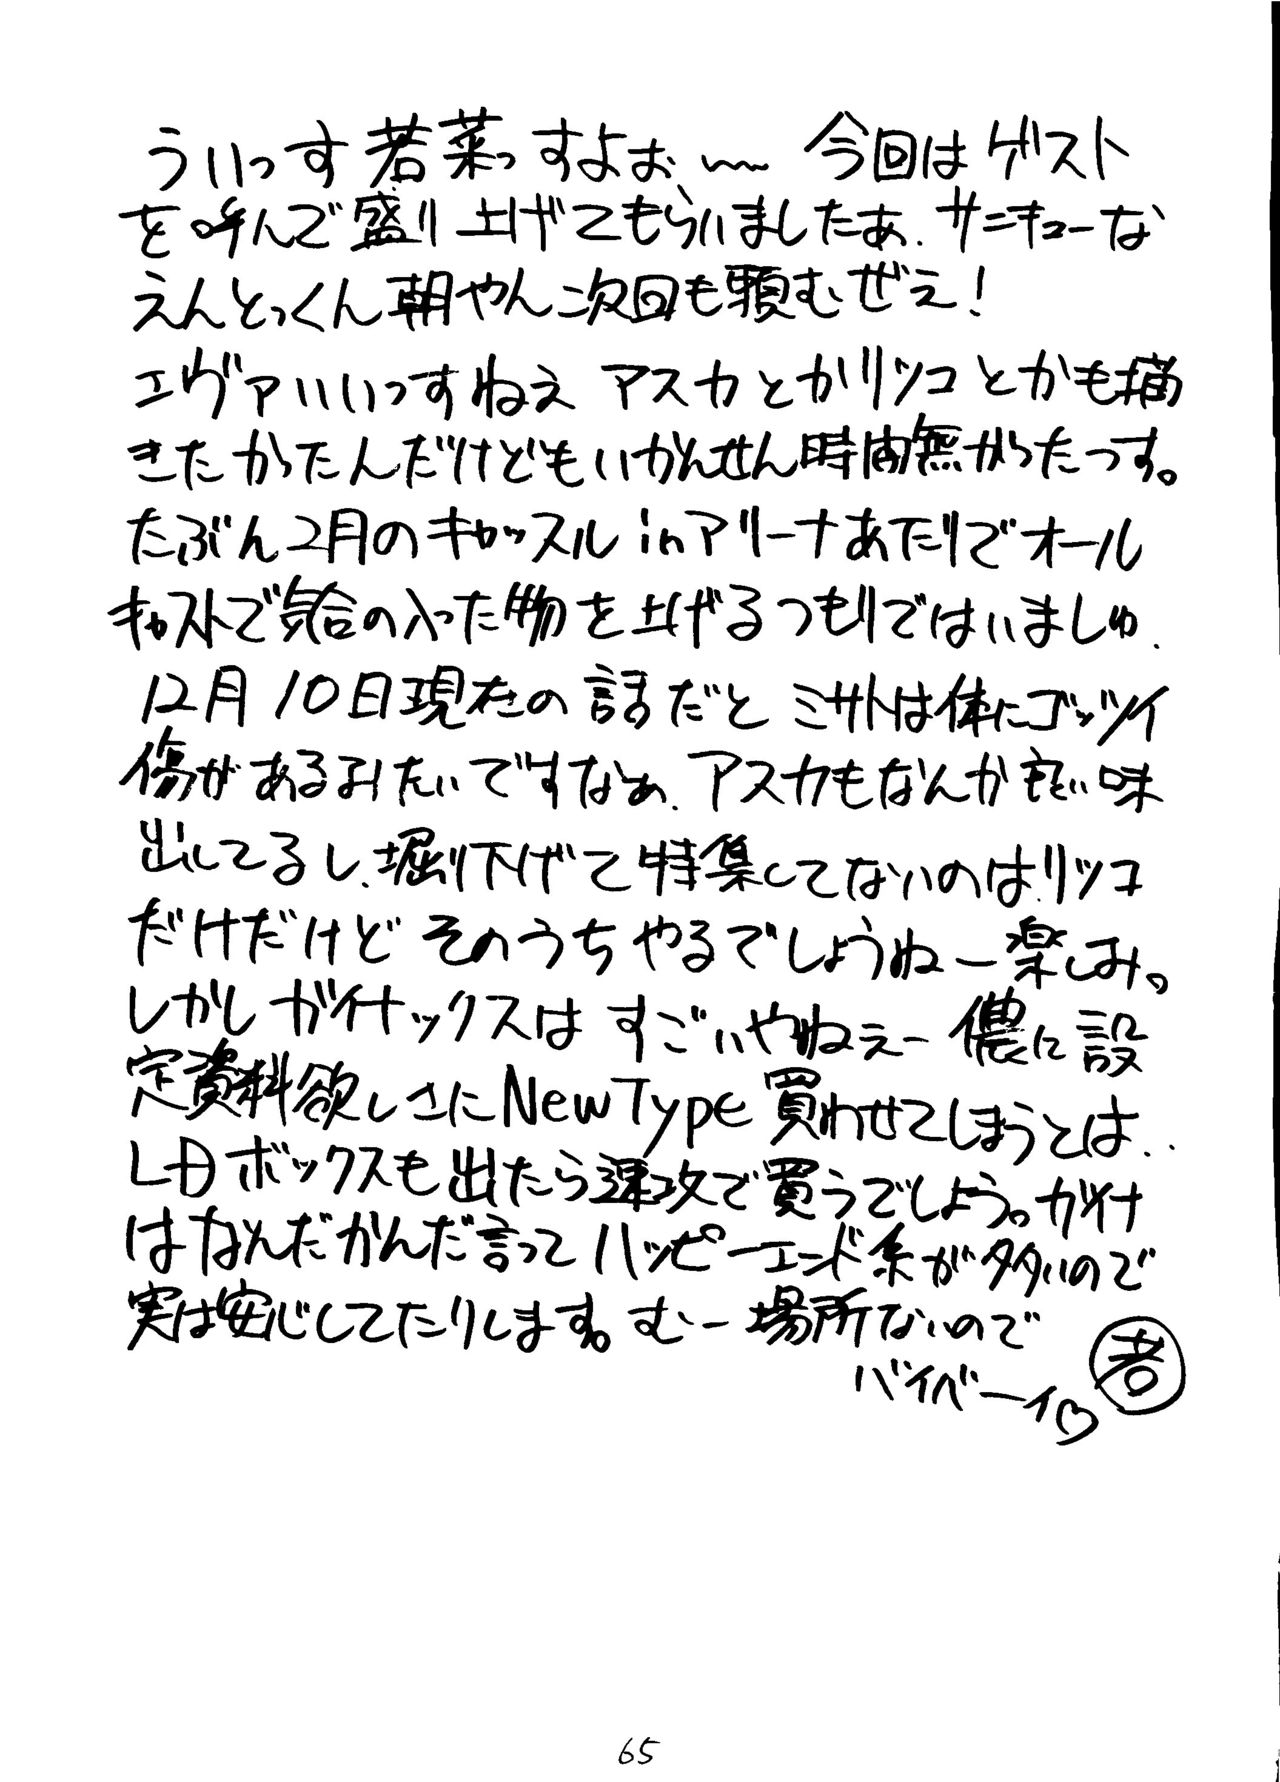 ういっす若菜っすよぉ〜 今回はゲスト
を呼んで盛り上げてもらいましたあ、サンキューな
えんとっくん朝やん次回も頼むぜえ!
エヴァいいっすねえ アスカとかリツコとかも描
きたかったんだけどもいかんせん時間無かったっす。
たぶん2月のキャッスルinアリーナあたりでオール
キャストで気合の入った物を上げるつもりではいましゅ、
12月10日現在の話だと ミサトは体にゴッツイ
傷があるみたいですなぁ、アスカもなんか良い味
出してるし、堀り下げて特集してないのはリツコ
だけだけど そのうちやるでしょうねー楽しみ。
しかしガイナックスは すごいやねぇー 儂に設
定資料欲しさにNewType買わせてしまうとは‥
LDボックスも出たら速攻で買うでしょう。ガイナ
はなんだかんだ言ってハッピーエンド系が多いので
実は安心してたりします。むー場所ないので
バイベーイ♡ 若
65